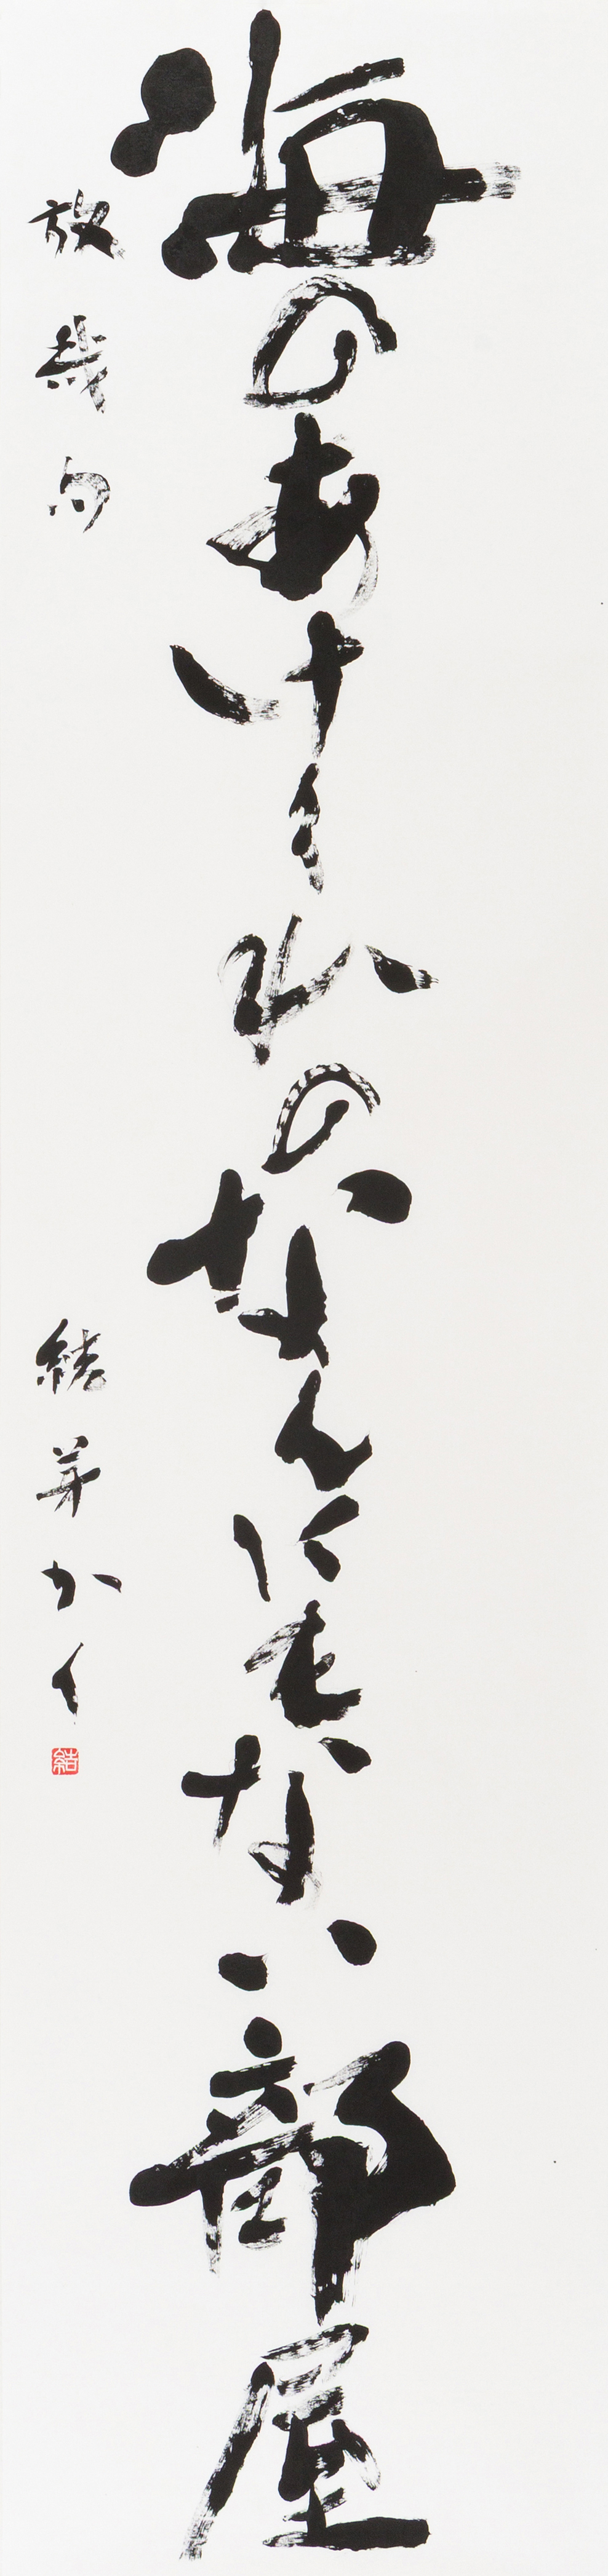 海のあけくれのなんにもない部屋
放哉句
結芽かく
結